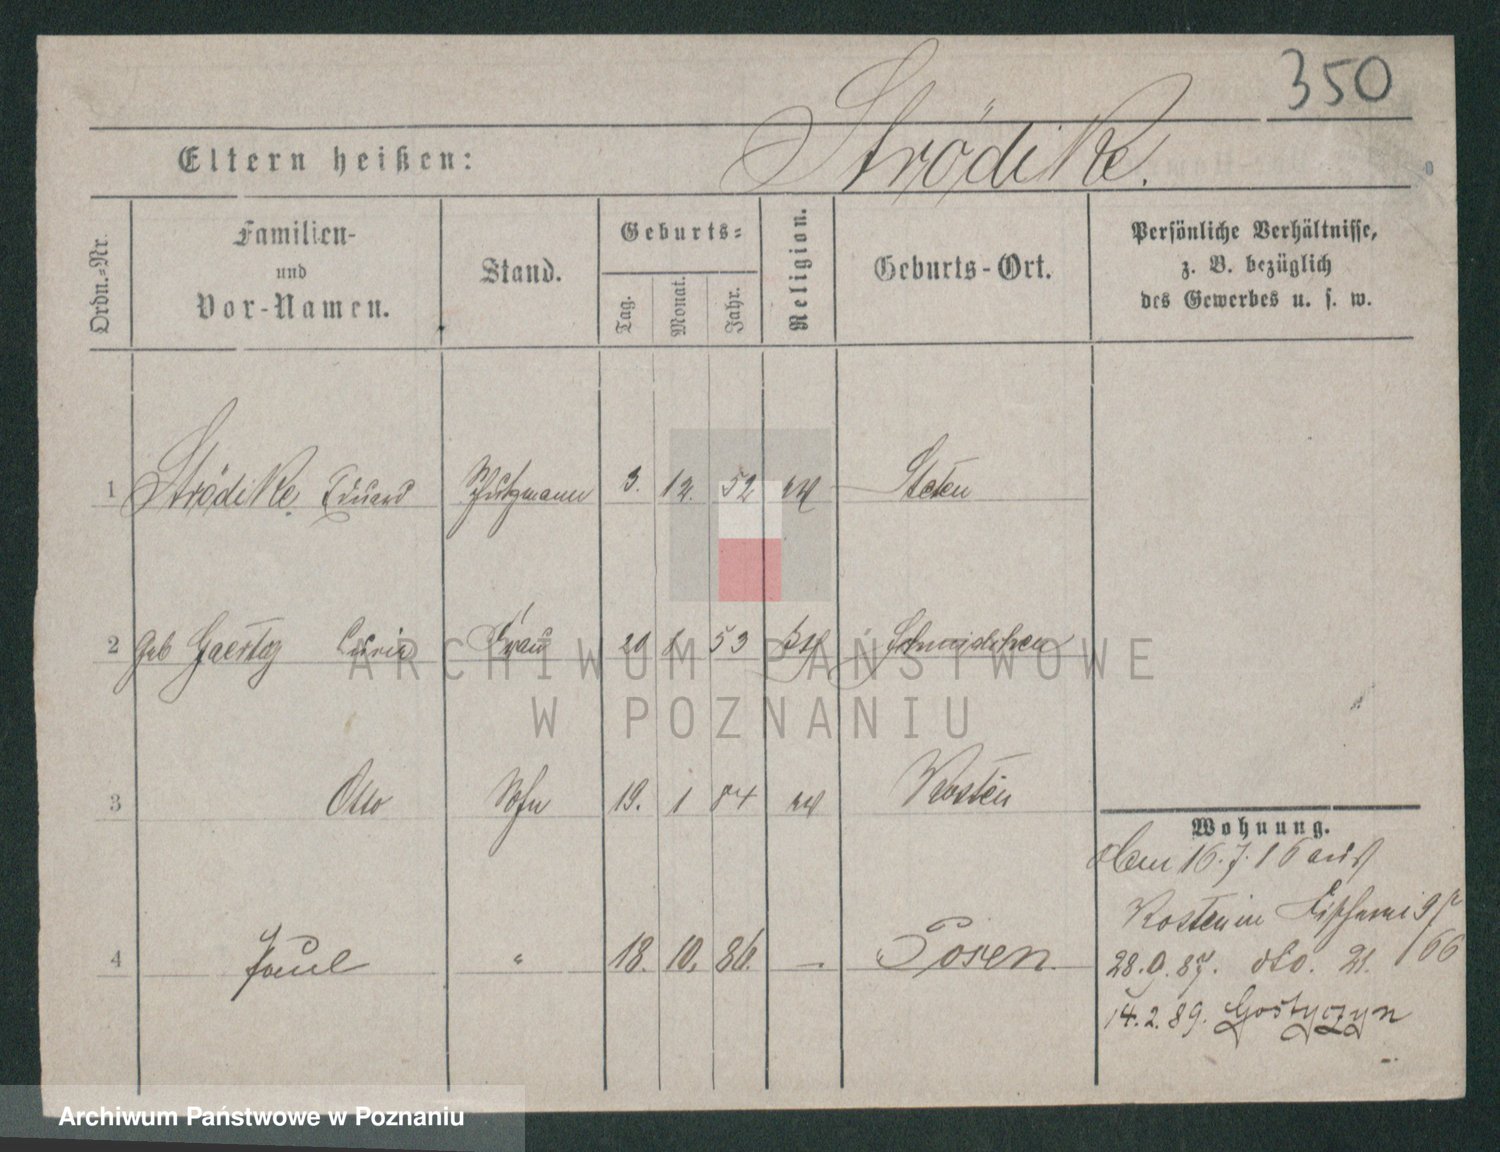 350
Eltern heißen: Strödike.
Ordn.=Nr.
Familien-
und
Vor-Namen.
Stand.
Geburts=
Tag.
Monat.
Jahr.
Religion.
Geburts-Ort.
Persönliche Verhältnisse,
z. B. bezüglich
des Gewerbes u. s. w.
1 Strödike Eduard Schutzmann 3. 12. 52 ev
2 geb Frau 20 53
3 Otto Sohn 19. 1 84 ev Kosten
4 Paul " 18. 10. 86. Posen
Wohnung.
16. 7. 16 aus
Kosten
28. 9. 87. dto. 21.
14. 2. 89. Gostyczyn
ARCHIWUM PAŃSTWOWE
W POZNANIU
Archiwum Państwowe w Poznaniu